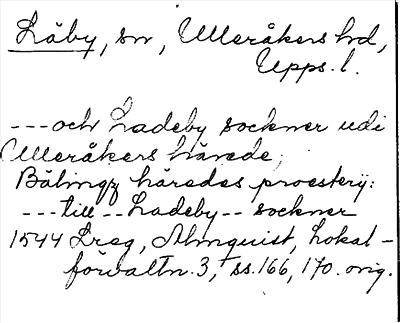 Läby, sn, Ulleråkers hd,
Upps. l.
---och Ladeby sockner udi
Ulleråkers härede;
Bälingz häredes proesterij:
---till -- Ladeby -- sockner
1544 Lreg, Almquist, Lokal-
förvaltn. 3, ss. 166, 170. orig.